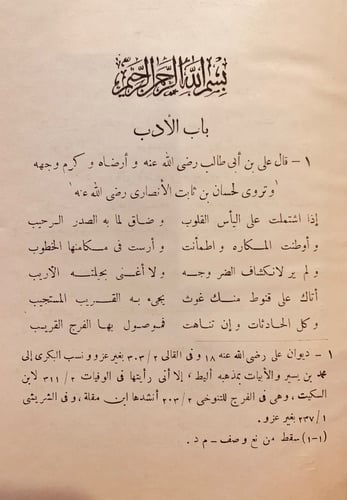 بسم الله الرحمن الرحيم
باب الأدب
١ – قال على بن أبى طالب رضى الله عنه و أرضاه و كرم وجهه
'و تروى لحسان بن ثابت الأنصارى رضى الله عنه'
إذا اشتملت على اليأس القلوب و ضاق لما به الصدر الرحيب
و أوطنت المكاره و اطمأنت و أرست فى مكامنها الخطوب
و لم ير لانكشاف الضر وجه و لا أغنى بحيلته الأريب
أتاك على قنوط منك غوث يجىء به القريب المستجيب
و كل الحادثات و إن تناهت فموصول بها الفرج القريب
١ – ديوان على رضى الله عنه ١٨ و فى القالى ٢ / ٣٠٣ بغير عزو و نسب البكرى إلى
محمد بن يسير و الأبيات بمذهبه أليط، إلا أنى رأيتها فى الوفيات ٢ / ٣١١ لابن
السكيت، وهى فى الفرج للتنوخى ٢ / ٢٠٣ أنشدها ابن مقلة، و فى الشريشى
١ / ٢٣٧ بغير عزو.
(١–١) سقط من نع و صف – م د .